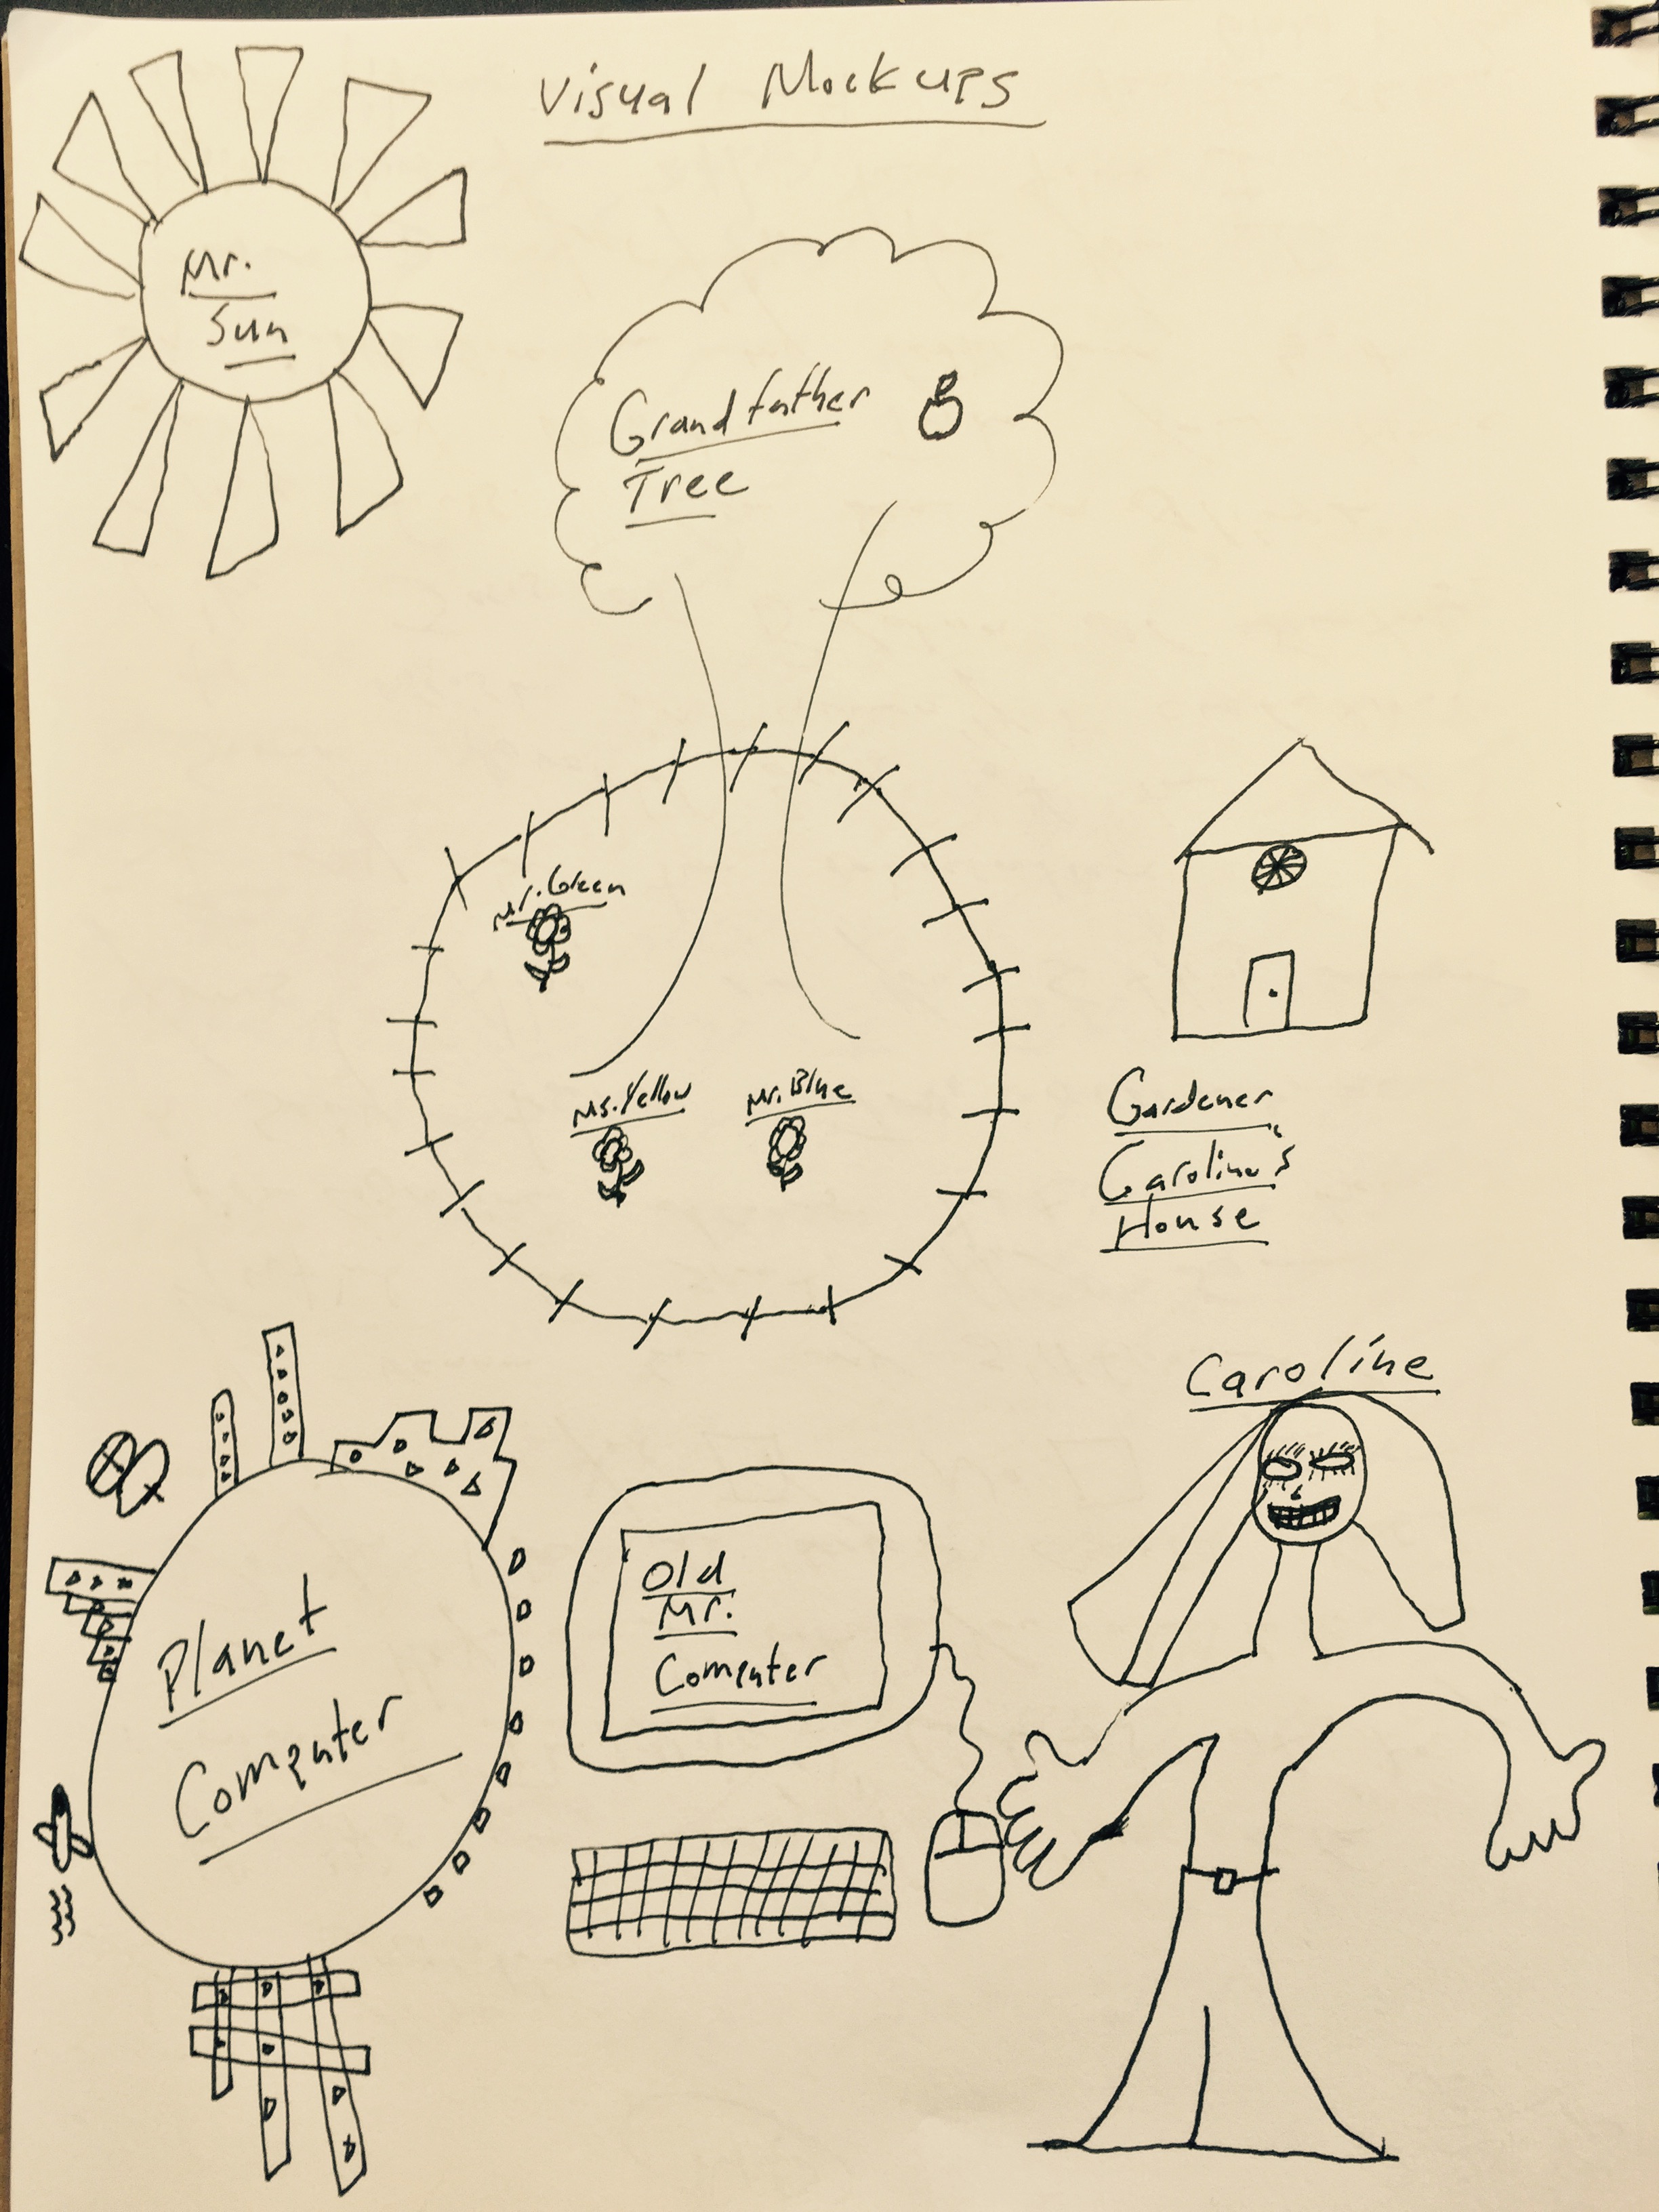 Visual Mockups
Mr.
Sun
Grandfather
Tree
Mr. Green
Ms. Yellow
Mr. Blue
Gardener
Caroline's
House
Caroline
Planet
Computer
Old
Mr.
Computer